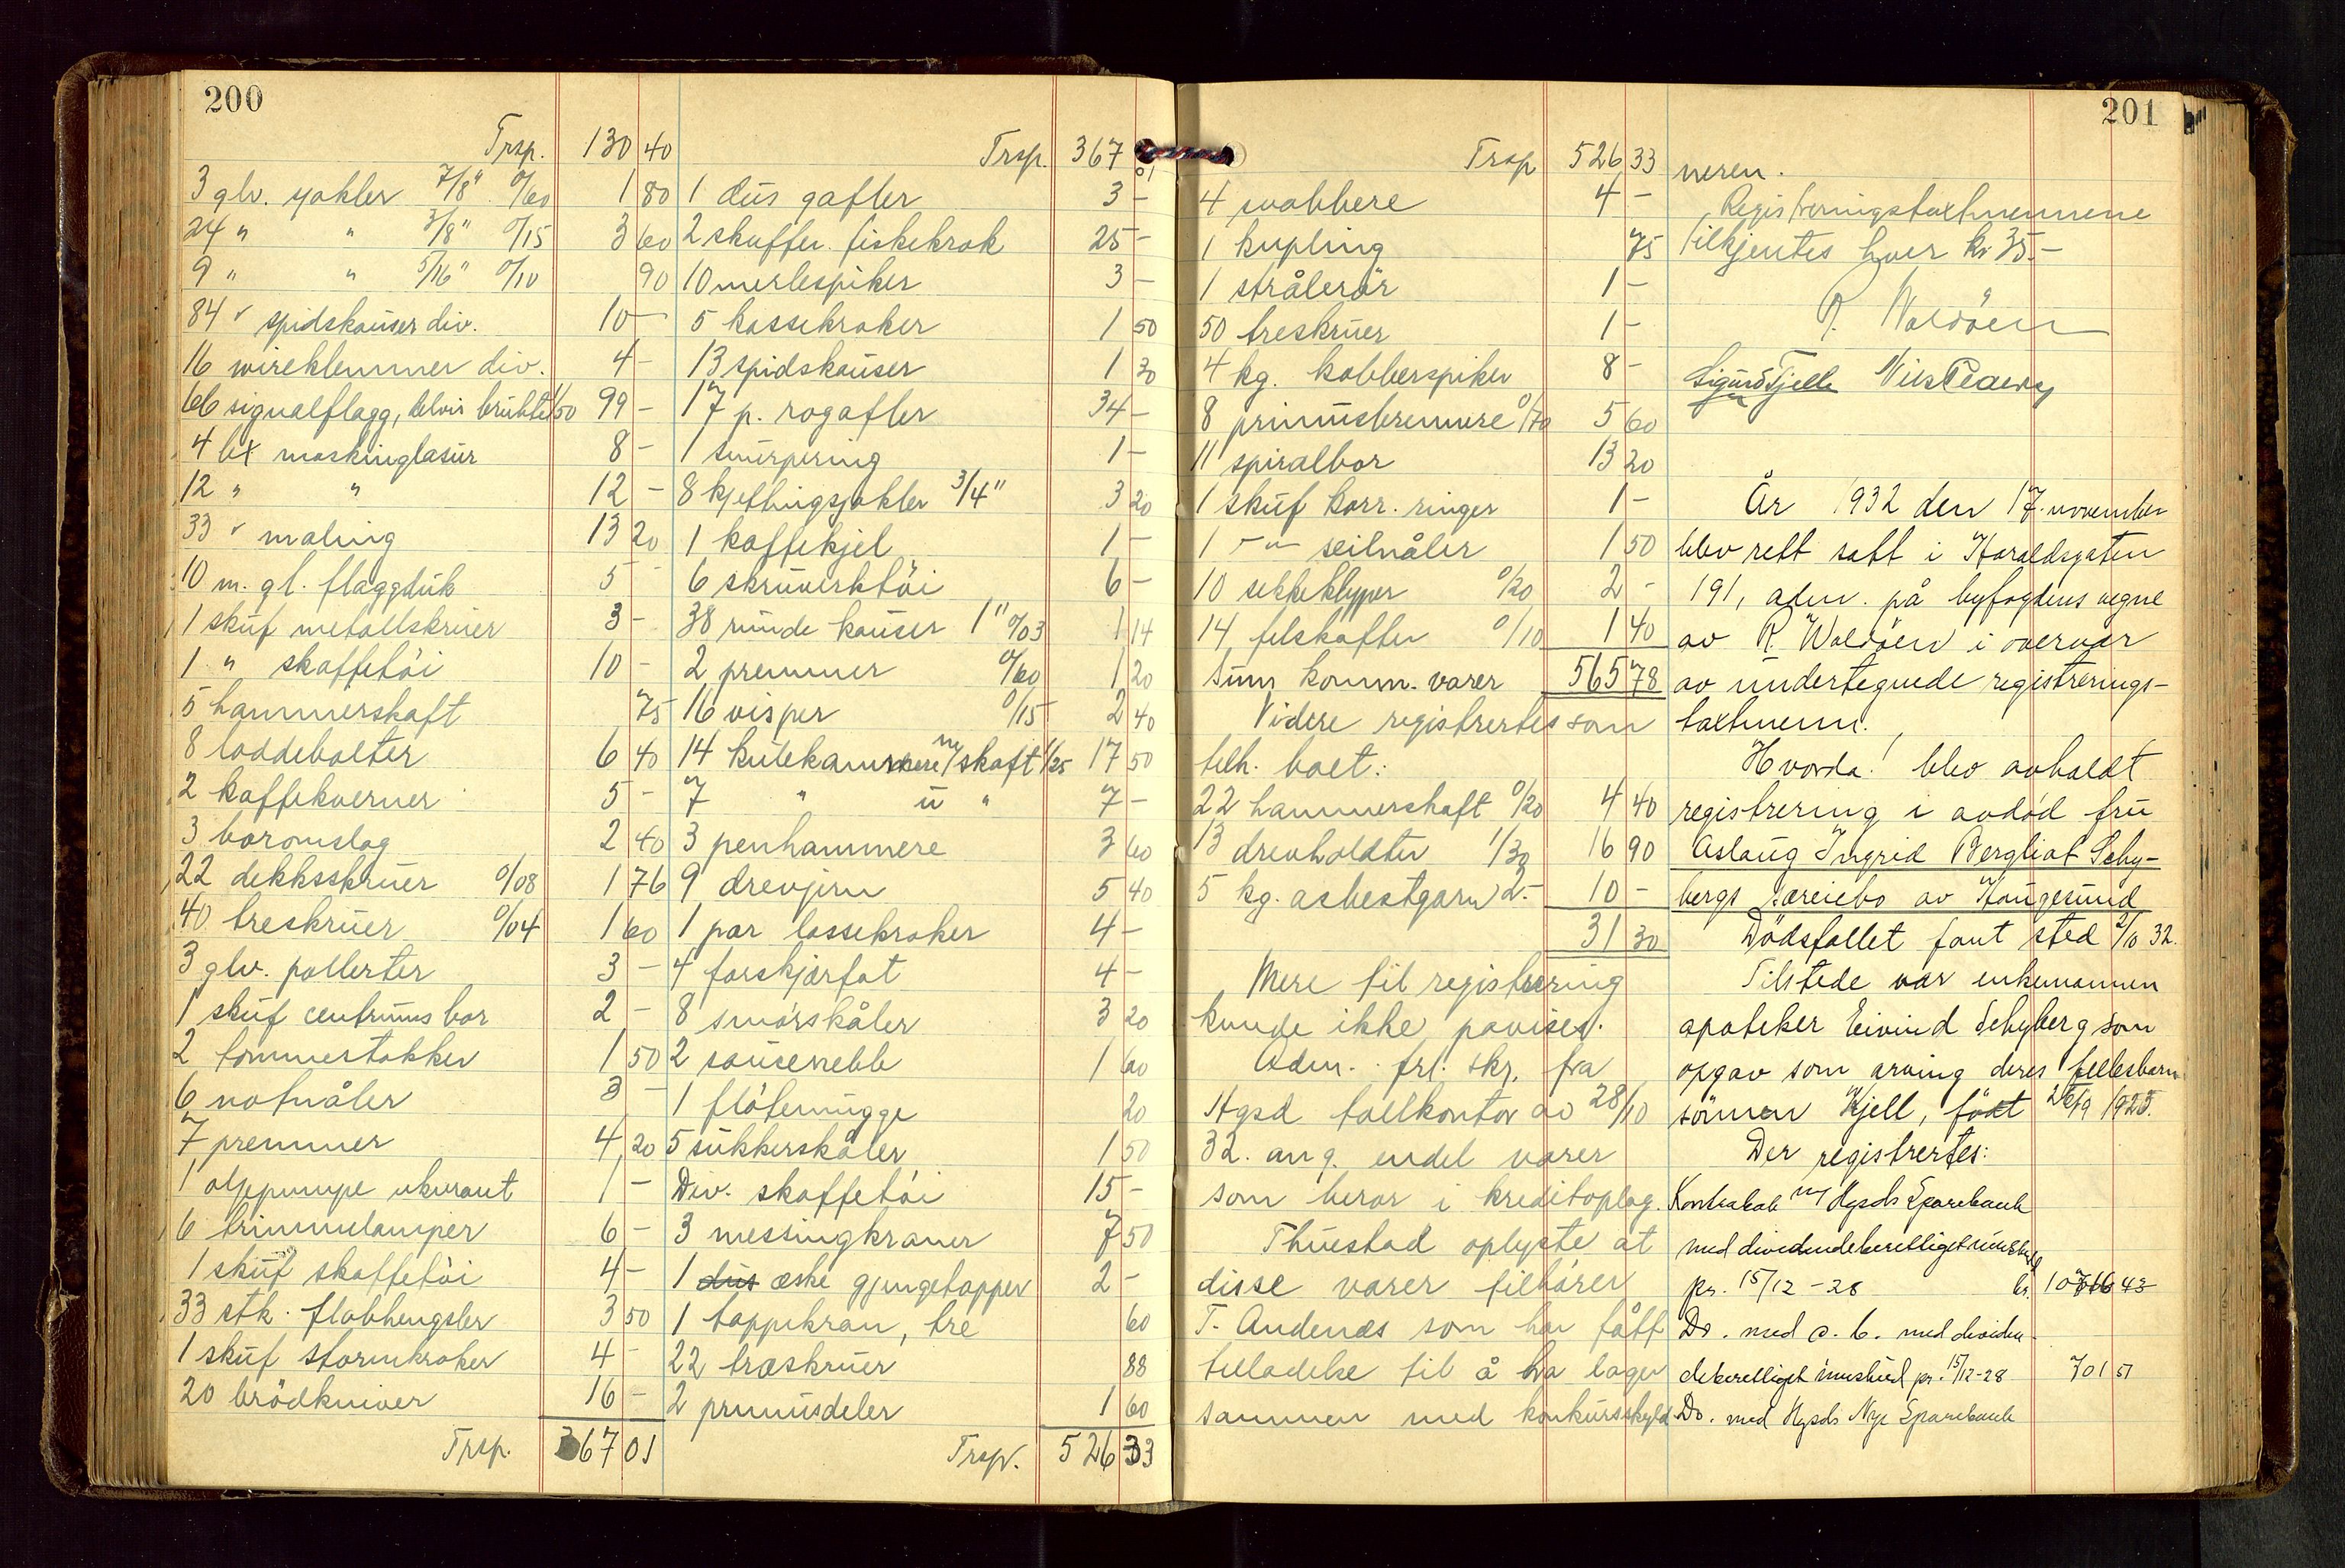 200
Trsp. 130 40
3 glv. sjakler 7/8" 0/60 1 80
24 " " 3/8" 0/15 3 60
9 " " 5/16" 0/10 90
84 " spidskauser div. 10 -
16 wireklemmer div. 4 -
66 signalflagg, delvis brukte 1/50 99 -
4 bx maskinglasur 8 -
12 " " 12 -
33 " maling 13 20
10 m. gl. flaggduk 5 -
1 skuf metallskruer 3 -
1 " skaffetöi 10 -
5 hammerskaft 75
8 loddebolter 6 40
2 kaffekverner 5 -
3 boromslag 2 40
22 dekksskruer 0/08 1 76
40 treskruer 0/04 1 60
3 glv. pullerter 3 -
1 skuf centrums bor 2 -
2 tommestokker 1 50
6 notnåler 3 -
7 premmer 4 20
1 oljepumpe ukurant 1 -
6 brimmelamper 6 -
1 skuf skaffetöi 4 -
33 stk. flobhengsler 3 50
1 skuf stormkroker 4 -
20 brödkniver 16 -
Trsp. 367 01
Trsp. 367 01
1 dus gafler 3 -
2 skuffer fiskekrok 25 -
10 merlespiker 3 -
5 kassekroker 1 50
13 spidskauser 1 30
17 p. rogafler 34 -
1 snurpering 1 -
8 kjettingsjakler 3/4" 3 20
1 kaffekjel 1 -
6 skruverktöi 6 -
38 runde kauser 1" 0/03 1 14
2 premmer 0/60 1 20
16 visper 0/15 2 40
14 kulehammere m/skaft 1/25 17 50
7 " u " 7 -
3 penhammere 3 60
9 drevjern 5 40
1 par lassekroker 4 -
4 forskjærfat 4 -
8 smörskåler 3 20
2 sausenebb 1 60
1 flötemugge 20
5 sukkerskåler 1 50
Div. skaffetöi 15 -
3 messingkraner 7 50
1 dus æske gjungetapper 2 -
1 tappekran, tre 60
22 træskruer 88
2 primusdeler 1 60
Trsp. 526 33
201
Trsp 526 33
4 svabbere 4 -
1 kupling 75
1 strålerör 1 -
50 treskruer 1 -
4 kg. kobberspiker 8 -
8 primusbrennere 0/70 5 60
11 spiralbor 13 20
1 skuf korr. ringer 1 -
1 -"- seilnåler 1 50
10 sekkeklyper 0/20 2 -
14 filskafter 0/10 1 40
Sum komm. varer 565 78
Videre registrertes som
tilh. boet:
22 hammerskaft 0/20 4 40
13 drevholdter 1/30 16 90
5 kg. asbestgarn 2.- 10 -
31 30
Mere til registrering
kunde ikke påvises.
Adm. frl. skr. fra
Hgsd tollkontor av 28/10
32. ang. endel varer
som beror i kreditoplag.
Thuestad oplyste at
disse varer tilhörer
T. Andenæs som har fått
tilladelse til å ha lager
sammen med konkursskyld
neren.
Registreringstakstmennene
tilkjentes hver kr 35.-
R. Waldöen
Sigurd Tjelle
År 1932 den 17. november
blev rett satt i Haraldsgaten
191, adm. på byfogdens vegne
av R. Waldöen i overvær
av undertegnede registrerings-
takstmenn.
Hvorda! blev avholdt
registrering i avdöd fru
Aslaug Ingrid Bergliot Schy-
bergs særeiebo av Haugesund
Dödsfallet fant sted 2/10 32.
Tilstede var enkemannen
apoteker Eivind Schyberg som
opgav som arving deres fellesbarn
sönnen Kjell, födt 26/9 1925.
Der registrertes:
Kontrabok m/ Hgsds Sparebank
med dividendeberettiget innskudd
pr. 15/12-28 kr. 10716 43
Do. med s. b. med dividen-
deberettiget innskud pr. 15/12-28 701 51
Do. med Hgsds Nye Sparebank